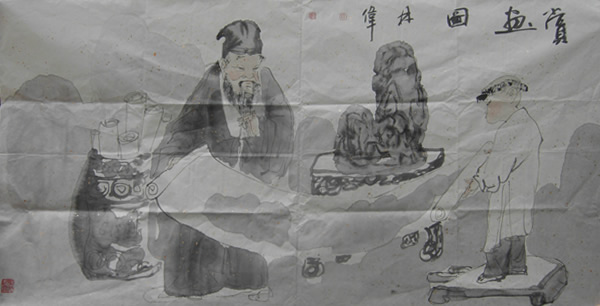 賞画圖 林偉